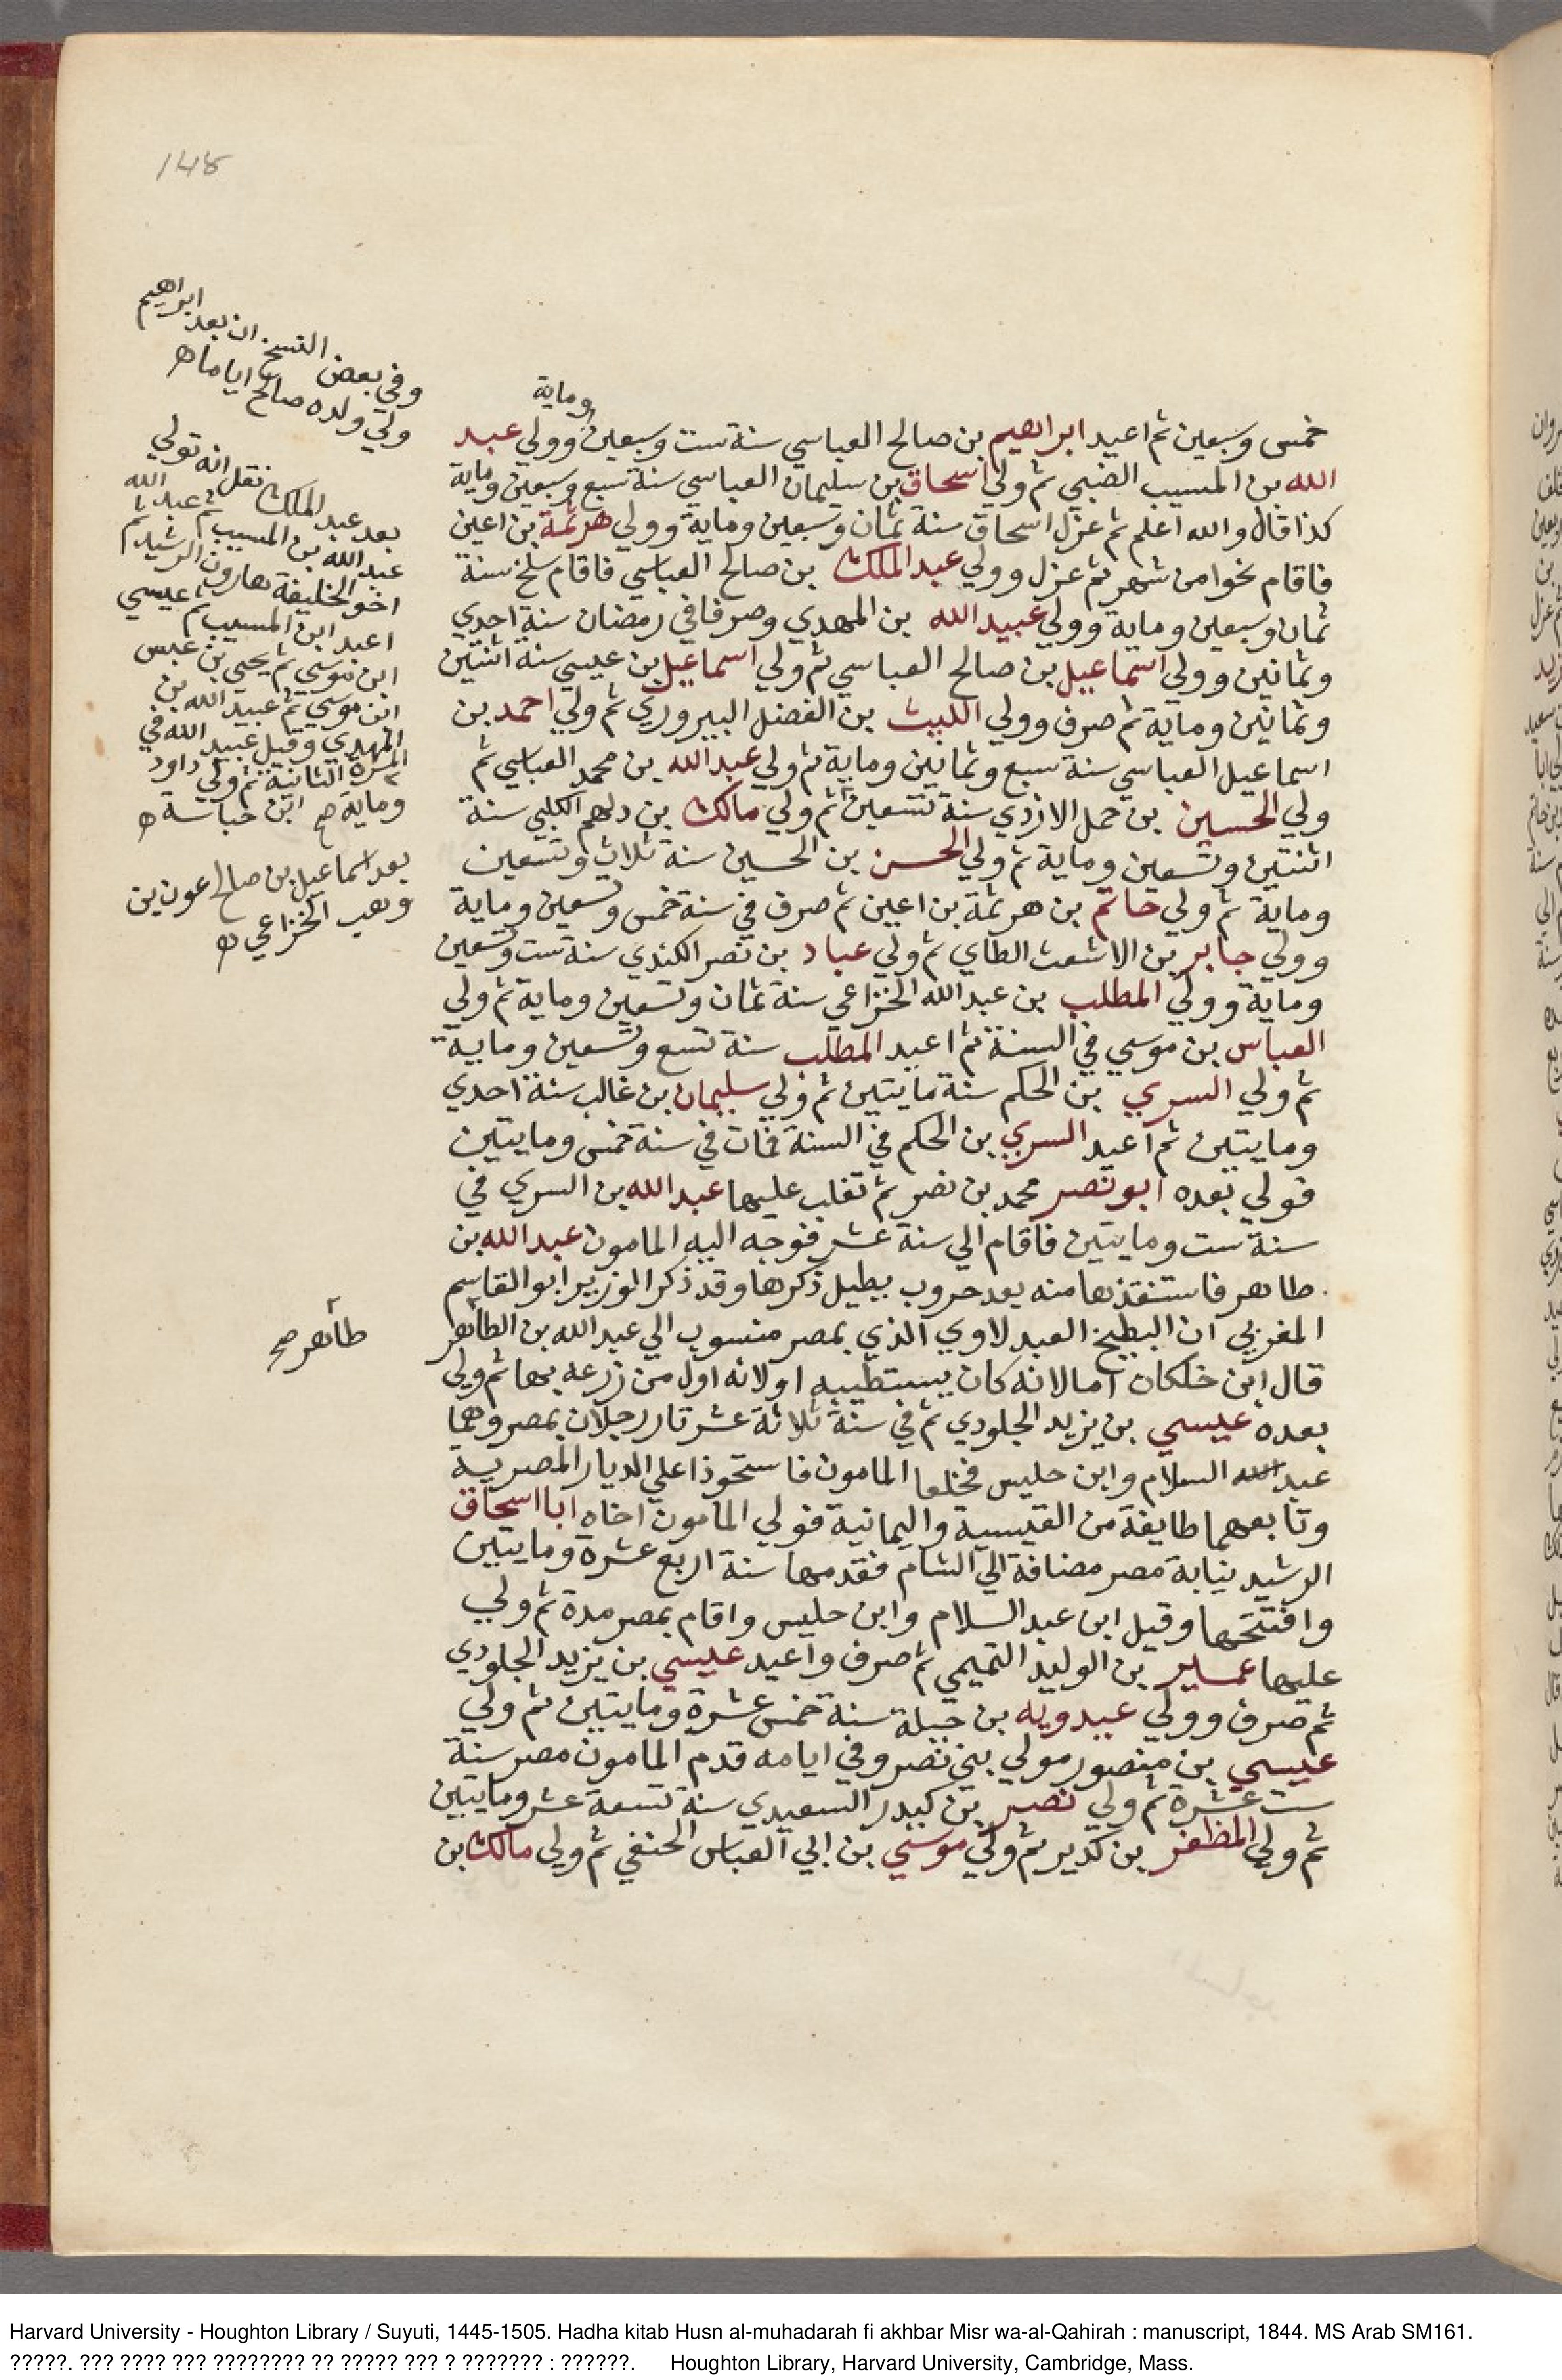 148
وماية
خمس وسبعين ثم اعيد ابراهيم بن صالح العباسي سنة ست وسبعين وولي عبد
الله بن المسيب الضبي ثم ولي اسحاق بن سليمان العباسي سنة سبع وسبعين وماية
كذا قال والله اعلم ثم عزل اسحاق سنة ثمان وسبعين وماية وولي هرثمة بن اعين
فاقام نحوا من شهر ثم عزل وولي عبد الملك بن صالح العباسي فاقام سلخ سنة
ثمان وسبعين وماية وولي عبيد الله بن المهدي وصرفا في رمضان سنة احدي
وثمانين وولي اسماعيل بن صالح العباسي ثم ولي اسماعيل بن عيسي سنة اثنتين
وثمانين وماية ثم صرف وولي الليث بن الفضل البيروري ثم ولي احمد بن
اسماعيل العباسي سنة سبع وثمانين وماية ثم ولي عبد الله بن محمد العباسي ثم
ولي الحسين بن حمل الازدي سنة تسعين ثم ولي مالك بن دلهم الكلبي سنة
اثنتين وتسعين وماية ثم ولي الحسن بن الحسين سنة ثلاث وتسعين
وماية ثم ولي حاتم بن هرثمة بن اعين ثم صرف في سنة خمس وتسعين وماية
وولي جابر بن الاشعث الطاي ثم ولي عباد بن نصر الكندي سنة ست وتسعين
وماية وولي المطلب بن عبد الله الخزاعي سنة ثمان وتسعين وماية ثم ولي
العباس بن موسي في السنة ثم اعيد المطلب سنة تسع وتسعين وماية
ثم ولي السري بن الحكم سنة مايتين ثم ولي سليمان بن غالب سنة احدي
ومايتين ثم اعيد السري بن الحكم في السنة فمات في سنة خمس ومايتين
فولي بعده ابو نصر محمد بن نصر ثم تغلب عليها عبد الله بن السري في
سنة ست ومايتين فاقام الي سنة عشر فوجه اليه المامون عبد الله بن
طاهر فاستنقذها منه بعد حروب يطيل ذكرها وقد ذكر الوزير ابو القاسم
المغربي ان البطيخ العبدلاوي الذي بمصر منسوب الي عبد الله بن الطاهر
قال ابن خلكان اما لانه كان يستطيبه او لانه اول من زرعه بها ثم ولي
بعده عيسي بن يزيد الجلودي ثم في سنة ثلاثة عشر تار رجلان بمصر وهما
عبد الله السلام وابن حليس فخلعا المامون فاستحوذا علي الديار المصرية
وتابعهما طايفة من القيسية واليمانية فولي المامون اخاه ابا اسحاق
الرشيد نيابة مصر مضافة الي الشام فقدمها سنة اربع عشرة ومايتين
وافتتحها وقيل ابن عبد السلام وابن حليس واقام بمصر مدة ثم ولي
عليها عمير بن الوليد التميمي ثم صرف واعيد عيسي بن يزيد الجلودي
ثم صرف وولي عبدويه بن جبلة سنة خمس عشرة ومايتين ثم ولي
عيسي بن منصور مولي بني نصر وفي ايامه قدم المامون مصر سنة
ست عشرة ثم ولي نصر بن كيدر السعيدي سنة تسعة عشر ومايتين
ثم ولي المظفر بن كدير ثم ولي موسي بن ابي العباس الحنفي ثم ولي مالك بن
وفي بعض النسخ ان بعد ابراهيم
ولي ولده صالح اياما ه
نقل انه تولي
بعد عبد الملك عبد الله
عبد الله بن المسيب ثم
اخو الخليفة هارون الرشيد ثم
اعيد ابن المسيب ثم عيسي
ابن موسي ثم يحيي بن عيس
ابن موسي ثم عبيد الله بن
المهدي وقيل عبيد الله في
المرة الثانية ثم ولي داود
ابن حباسة ه
وماية صح
بعد اسماعيل بن صالح عون بن
وهب الخزاعي ه
طاهر صح
Harvard University - Houghton Library / Suyuti, 1445-1505. Hadha kitab Husn al-muhadarah fi akhbar Misr wa-al-Qahirah : manuscript, 1844. MS Arab SM161.
?????. ??? ???? ??? ???????? ?? ????? ??? ? ??????? : ??????. Houghton Library, Harvard University, Cambridge, Mass.